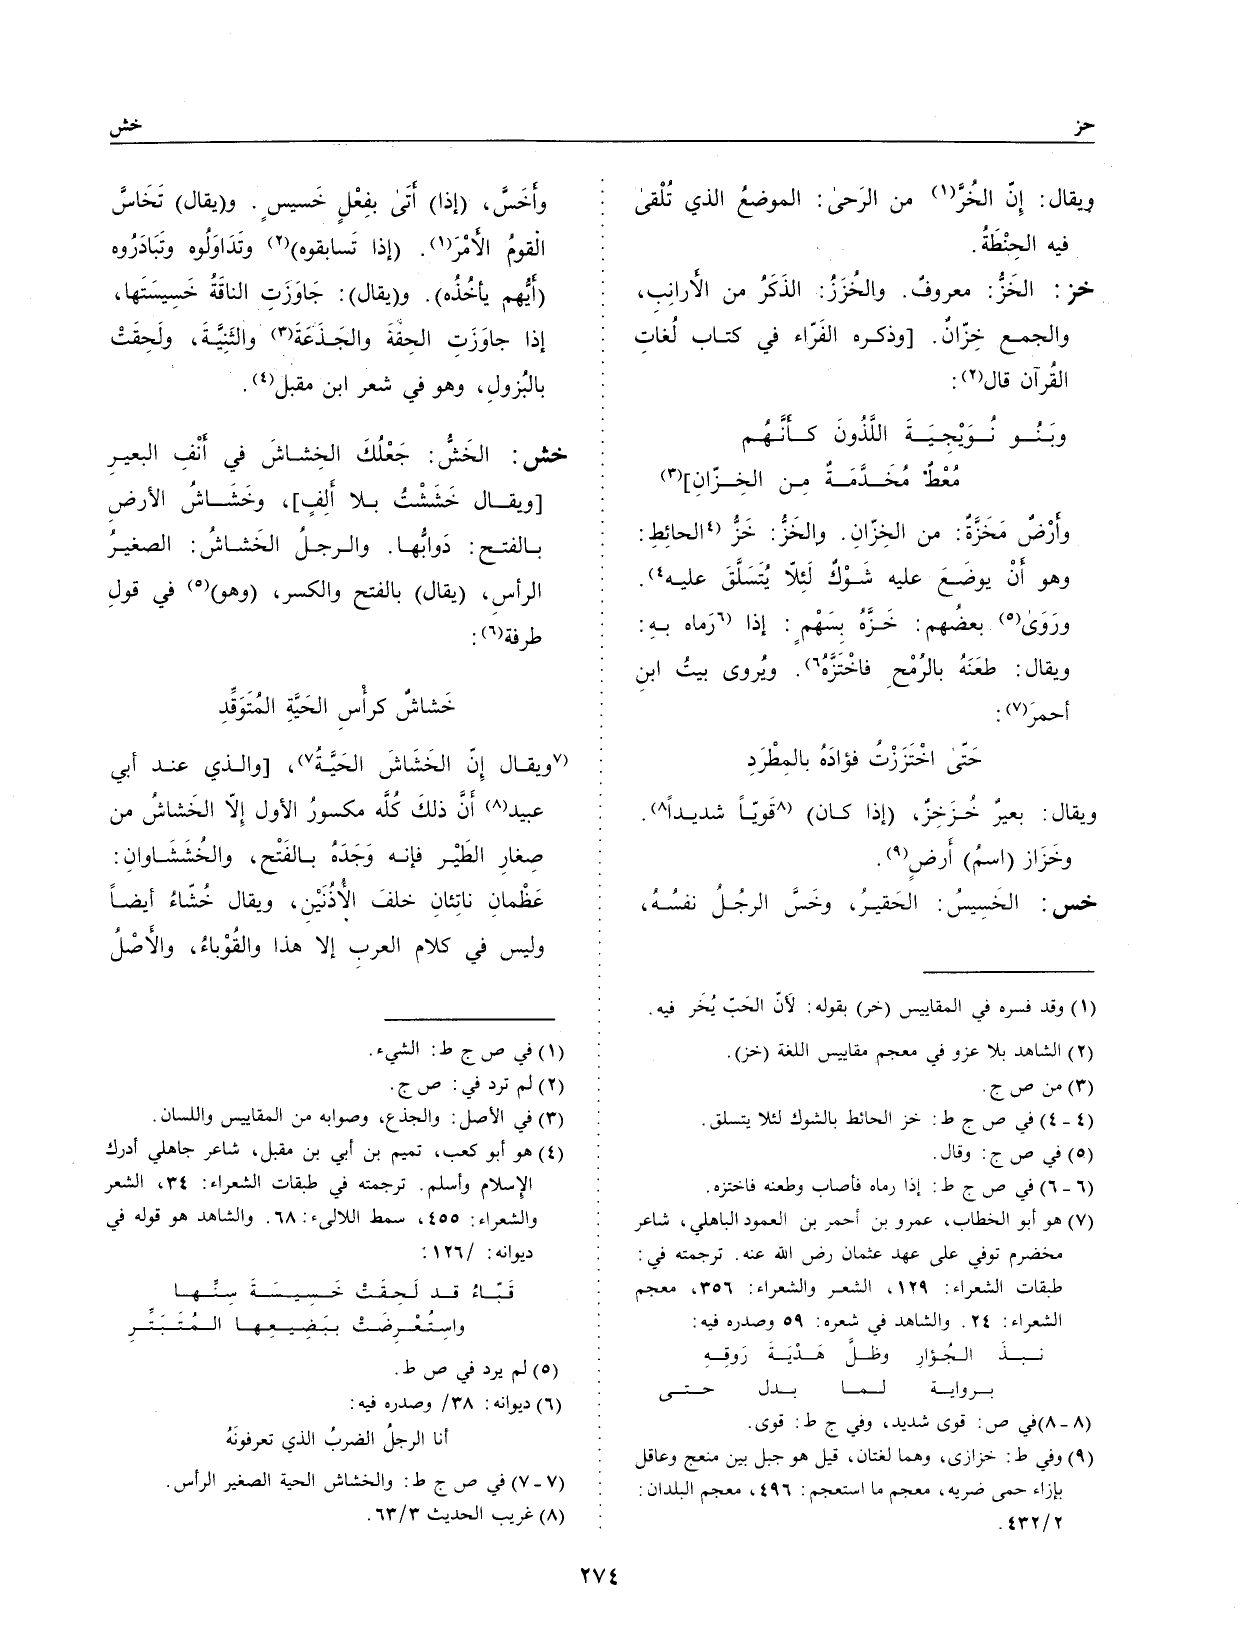 حز
خش
ويقال: إنّ الخُرَّ(١) من الرَحىٰ: الموضعُ الذي تُلْقىٰ
فيه الحِنْطَةُ.
خز: الخَزُّ: معروفٌ. والخُزَزُ: الذَكَرُ من الأَرانِبِ،
والجمع خِزّانٌ. [وذكره الفَرّاء في كتاب لُغاتِ
القُرآن قال(٢):
وبَنُو نُوَيْجِيَةَ اللَّذُونَ كَأَنَّهُم
مُعْطٌ مُخَدَّمَةٌ مِن الخِزّانِ](٣)
وأَرْضٌ مَخَزَّةٌ: من الخِزّانِ. والخَزُّ: خَزُّ (٤الحائِطِ:
وهو أَنْ يوضَعَ عليه شَوْكٌ لَئلّا يُتَسَلَّق عليه٤).
ورَوَىٰ(٥) بعضُهم: خَزَّهُ بِسَهْمٍ: إذا (٦رَماه بِهِ:
ويقال: طعَنَهُ بالرُمْحِ فاخْتَزَّهُ٦). ويُروى بيتُ ابنِ
أحمرَ(٧):
حَتّىٰ اخْتَزَزْتُ فؤادَهُ بالمِطْرَدِ
ويقال: بعيرٌ خُزَخِزٌ، (إذا كان) (٨قَويّاً شديداً٨).
وخَزَاز (اسمُ) أَرضٍ(٩).
خس: الخَسِيسُ: الحَقيرُ، وخَسَّ الرجُلُ نفسُهُ،
(١) وقد فسره في المقاييس (خر) بقوله: لأَنّ الحَبّ يُخَر فيه.
(٢) الشاهد بلا عزو في معجم مقاييس اللغة (خز).
(٣) من ص ج.
(٤ - ٤) في ص ج ط: خز الحائط بالشوك لئلا يتسلق.
(٥) في ص ج: وقال.
(٦-٦) في ص ج ط: إذا رماه فأصاب وطعنه فاختزه.
(٧) هو أبو الخطاب، عمرو بن أحمر بن العمود الباهلي، شاعر
مخضرم توفي على عهد عثمان رضي الله عنه. ترجمته في:
طبقات الشعراء: ١٢٩، الشعر والشعراء: ٣٥٦، معجم
الشعراء: ٢٤. والشاهد في شعره: ٥٩ وصدره فيه:
نبذ الجُؤار وظلَّ هَدْيَةَ رَوقِهِ
برواية لما بدل حتى
(٨-٨)في ص: قوى شديد، وفي ج ط: قوى.
(٩) وفي ط: خزازى، وهما لغتان، قيل هو جبل بين منعج وعاقل
بإزاء حمى ضريه، معجم ما استعجم: ٤٩٦، معجم البلدان:
٤٣٢/٢.
وأَخسَّ، (إذا) أَتَىٰ بفِعْلٍ خَسيسٍ. و(يقال) تَخَاسَّ
القومُ الأَمْرَ(١). (إذا تَسابقوه)(٢) وتَدَاوَلُوه وتَبَادَرُوه
(أَيُّهم يأخُذُه). و(يقال): جَاوَزَتِ الناقَةُ خَسِيسَتَها،
إذا جاوَزَتِ الحِقَّةَ والجَذَعَةَ(٣) والثَنِيَّةَ، ولَحِقَتْ
بالبُزولِ، وهو في شعر ابن مقبل(٤).
خش: الخَشُّ: جَعْلُكَ الخِشاشَ في أَنْفِ البعيرِ
[ويقال خَشَشْتُ بلا أَلِفٍ]، وخَشَاشُ الأرضِ
بالفتح: دَوابُّها. والرجلُ الخَشاشُ: الصغيرُ
الرأسِ، (يقال) بالفتح والكسر، (وهو)(٥) في قولِ
طرفة(٦):
خَشاشٌ كرأْسِ الحَيَّةِ المُتَوَقِّدِ
(٧ويقال إنّ الخَشَاشَ الحَيَّةُ٧)، [والذي عند أبي
عبيد(٨) أَنَّ ذلكَ كُلَّه مكسورُ الأول إلّا الخَشاشُ من
صِغارِ الطَيْرِ فإنه وَجَدَهُ بالفَتْح، والخُشَشَاوانِ:
عَظْمانِ ناتِئانِ خلفَ الأُذُنَيْنِ، ويقال خُشّاءُ أيضاً
وليس في كلام العربِ إلا هذا والقُوْباءُ، والأَصْلُ
(١) في ص ج ط: الشيء.
(٢) لم ترد في: ص ج.
(٣) في الأصل: والجذع، وصوابه من المقاييس واللسان.
(٤) هو أبو كعب، تميم بن أبي بن مقبل، شاعر جاهلي أدرك
الإسلام وأسلم. ترجمته في طبقات الشعراء: ٣٤، الشعر
والشعراء: ٤٥٥، سمط اللالىء: ٦٨. والشاهد هو قوله في
ديوانه: /١٢٦:
قَبّاءُ قد لَحِقَتْ خَسِيسَةَ سِنِّها
واستُعْرِضَتْ ببَضيعِها المُتَبَتِّرِ
(٥) لم يرد في ص ط.
(٦) ديوانه: ٣٨/ وصدره فيه:
أنا الرجلُ الضربُ الذي تعرفونَهُ
(٧-٧) في ص ج ط: والخشاش الحية الصغير الرأس.
(٨) غريب الحديث ٦٣/٣.
٢٧٤